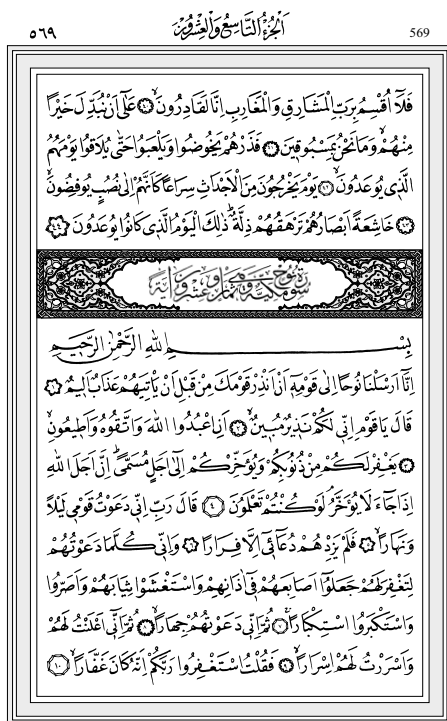 ٥٦٩ اَلْجُزْءُ التَّاسِعُ وَالْعِشْرُونَ 569
فَلَٓا اُقْسِمُ بِرَبِّ الْمَشَارِقِ وَالْمَغَارِبِ اِنَّا لَقَادِرُونَۙ ﴿٤٠﴾ عَلٰٓى اَنْ نُبَدِّلَ خَيْرًا
مِنْهُمْۙ وَمَا نَحْنُ بِمَسْبُوقٖينَ ﴿٤١﴾ فَذَرْهُمْ يَخُوضُوا وَيَلْعَبُوا حَتّٰى يُلَاقُوا يَوْمَهُمُ
الَّذٖي يُوعَدُونَۙ ﴿٤٢﴾ يَوْمَ يَخْرُجُونَ مِنَ الْاَجْدَاثِ سِرَاعًا كَاَنَّهُمْ اِلٰى نُصُبٍ يُوفِضُونَۙ
﴿٤٣﴾ خَاشِعَةً اَبْصَارُهُمْ تَرْهَقُهُمْ ذِلَّةٌؕ ذٰلِكَ الْيَوْمُ الَّذٖي كَانُوا يُوعَدُونَ ﴿٤٤﴾
سُورَةُ نُوحٍ مَكِّيَّةٌ وَهِيَ ثَمَانٍ وَعِشْرُونَ اٰيَةً
بِسْمِ اللّٰهِ الرَّحْمٰنِ الرَّحٖيمِ
اِنَّٓا اَرْسَلْنَا نُوحًا اِلٰى قَوْمِهٖٓ اَنْ اَنْذِرْ قَوْمَكَ مِنْ قَبْلِ اَنْ يَأْتِيَهُمْ عَذَابٌ اَلٖيمٌ ﴿١﴾
قَالَ يَا قَوْمِ اِنّٖي لَكُمْ نَذٖيرٌ مُبٖينٌۙ ﴿٢﴾ اَنِ اعْبُدُوا اللّٰهَ وَاتَّقُوهُ وَاَطٖيعُونِۙ
﴿٣﴾ يَغْفِرْ لَكُمْ مِنْ ذُنُوبِكُمْ وَيُؤَخِّرْكُمْ اِلٰٓى اَجَلٍ مُسَمًّىؕ اِنَّ اَجَلَ اللّٰهِ
اِذَا جَٓاءَ لَا يُؤَخَّرُۢ لَوْ كُنْتُمْ تَعْلَمُونَ ﴿٤﴾ قَالَ رَبِّ اِنّٖي دَعَوْتُ قَوْمٖي لَيْلًا
وَنَهَارًاۙ ﴿٥﴾ فَلَمْ يَزِدْهُمْ دُعَٓاءٖٓي اِلَّا فِرَارًا ﴿٦﴾ وَاِنّٖي كُلَّمَا دَعَوْتُهُمْ
لِتَغْفِرَ لَهُمْ جَعَلُٓوا اَصَابِعَهُمْ فٖٓي اٰذَانِهِمْ وَاسْتَغْشَوْا ثِيَابَهُمْ وَاَصَرُّوا
وَاسْتَكْبَرُوا اسْتِكْبَارًاۚ ﴿٧﴾ ثُمَّ اِنّٖي دَعَوْتُهُمْ جِهَارًاۙ ﴿٨﴾ ثُمَّ اِنّٖٓي اَعْلَنْتُ لَهُمْ
وَاَسْرَرْتُ لَهُمْ اِسْرَارًاۙ ﴿٩﴾ فَقُلْتُ اسْتَغْفِرُوا رَبَّكُمْ اِنَّهُ كَانَ غَفَّارًاۙ ﴿١٠﴾